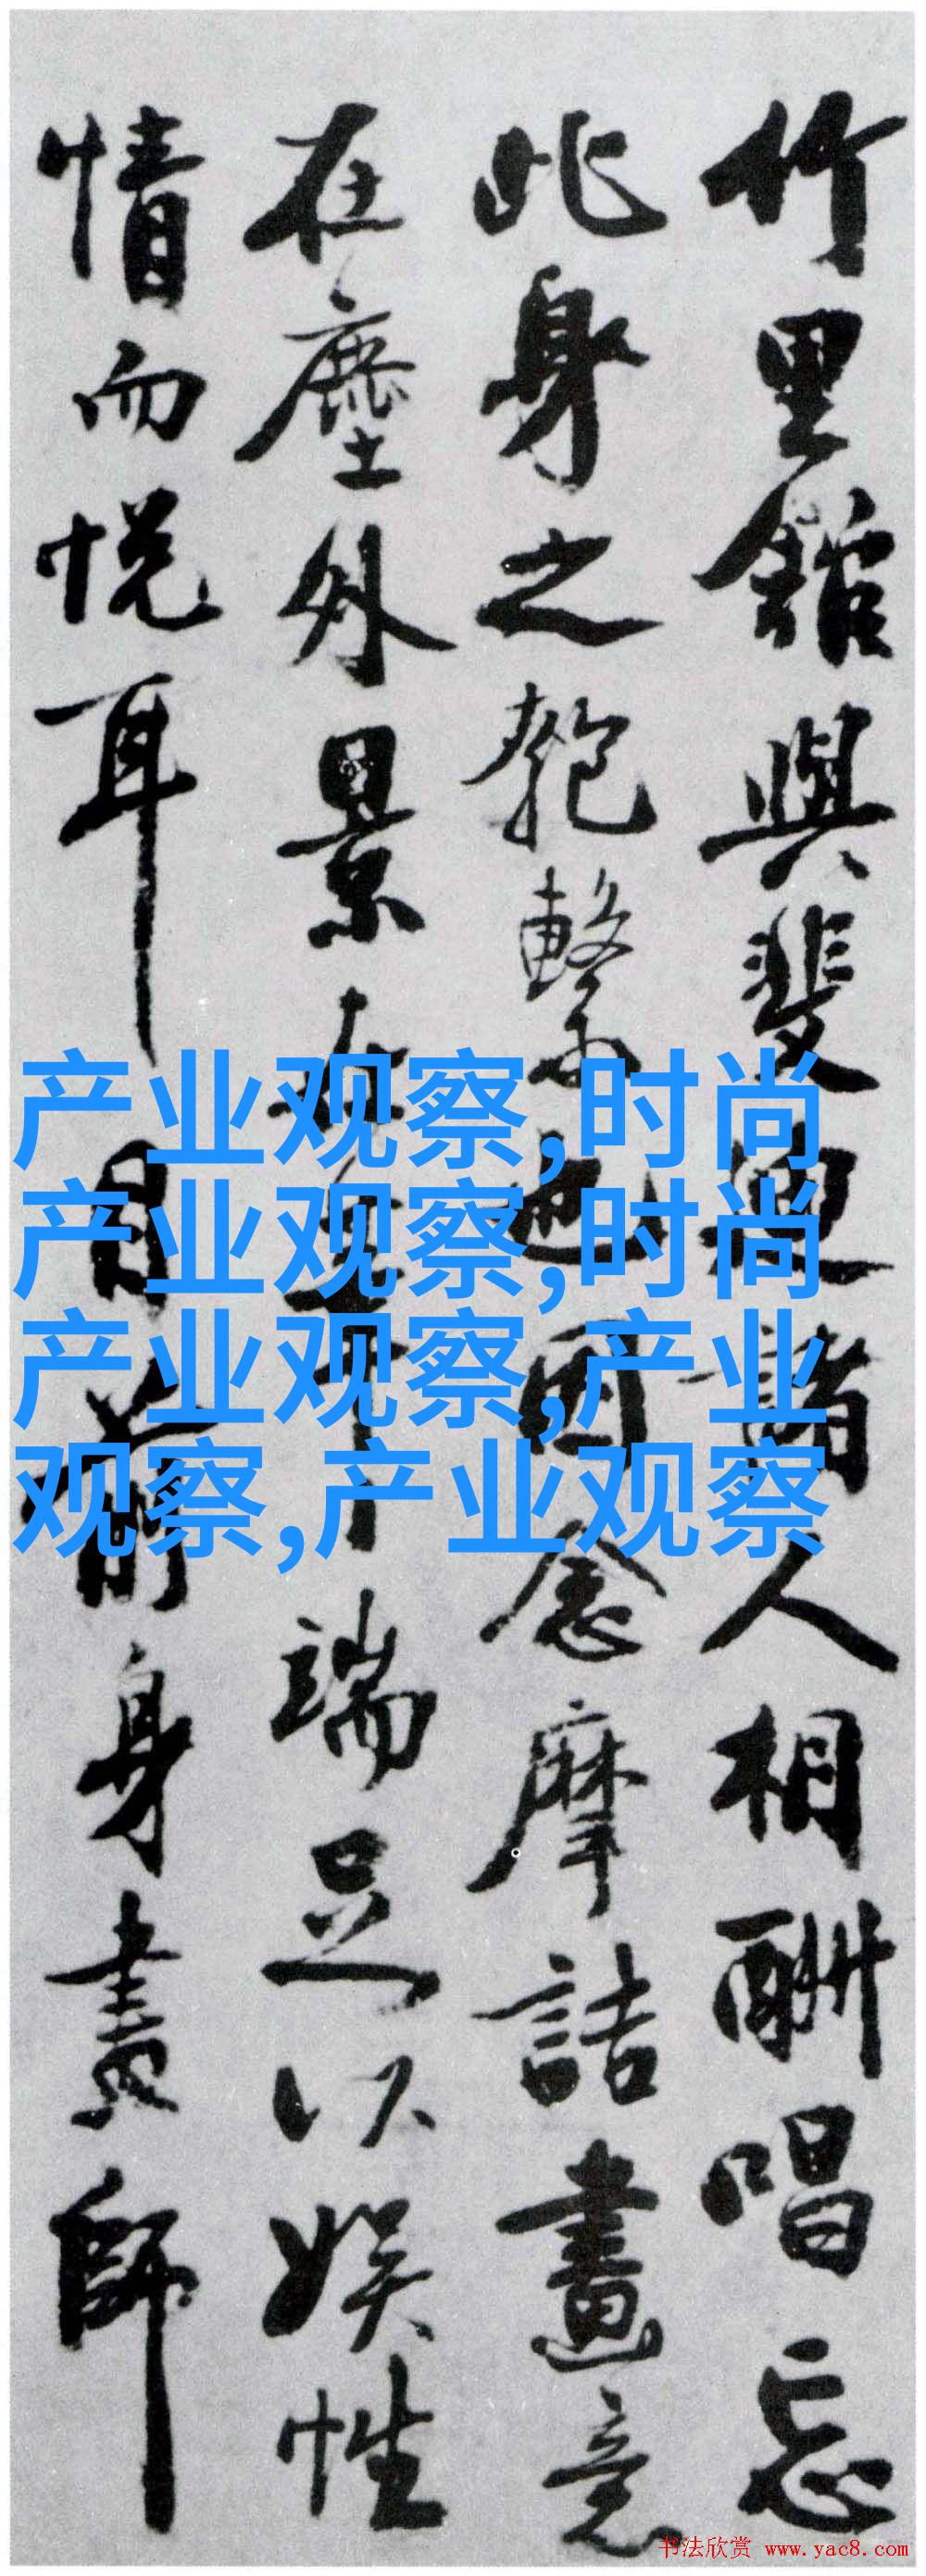 竹里館與斐迪諸人相酬唱忘
此身之匏繫也因念摩詰畫意
在塵外景在筆端足以娛性
情而悦耳目前身畫師
产业观察,时尚
产业观察,时尚
产业观察,产业
观察,产业观察
书法欣赏 www.yac8.com